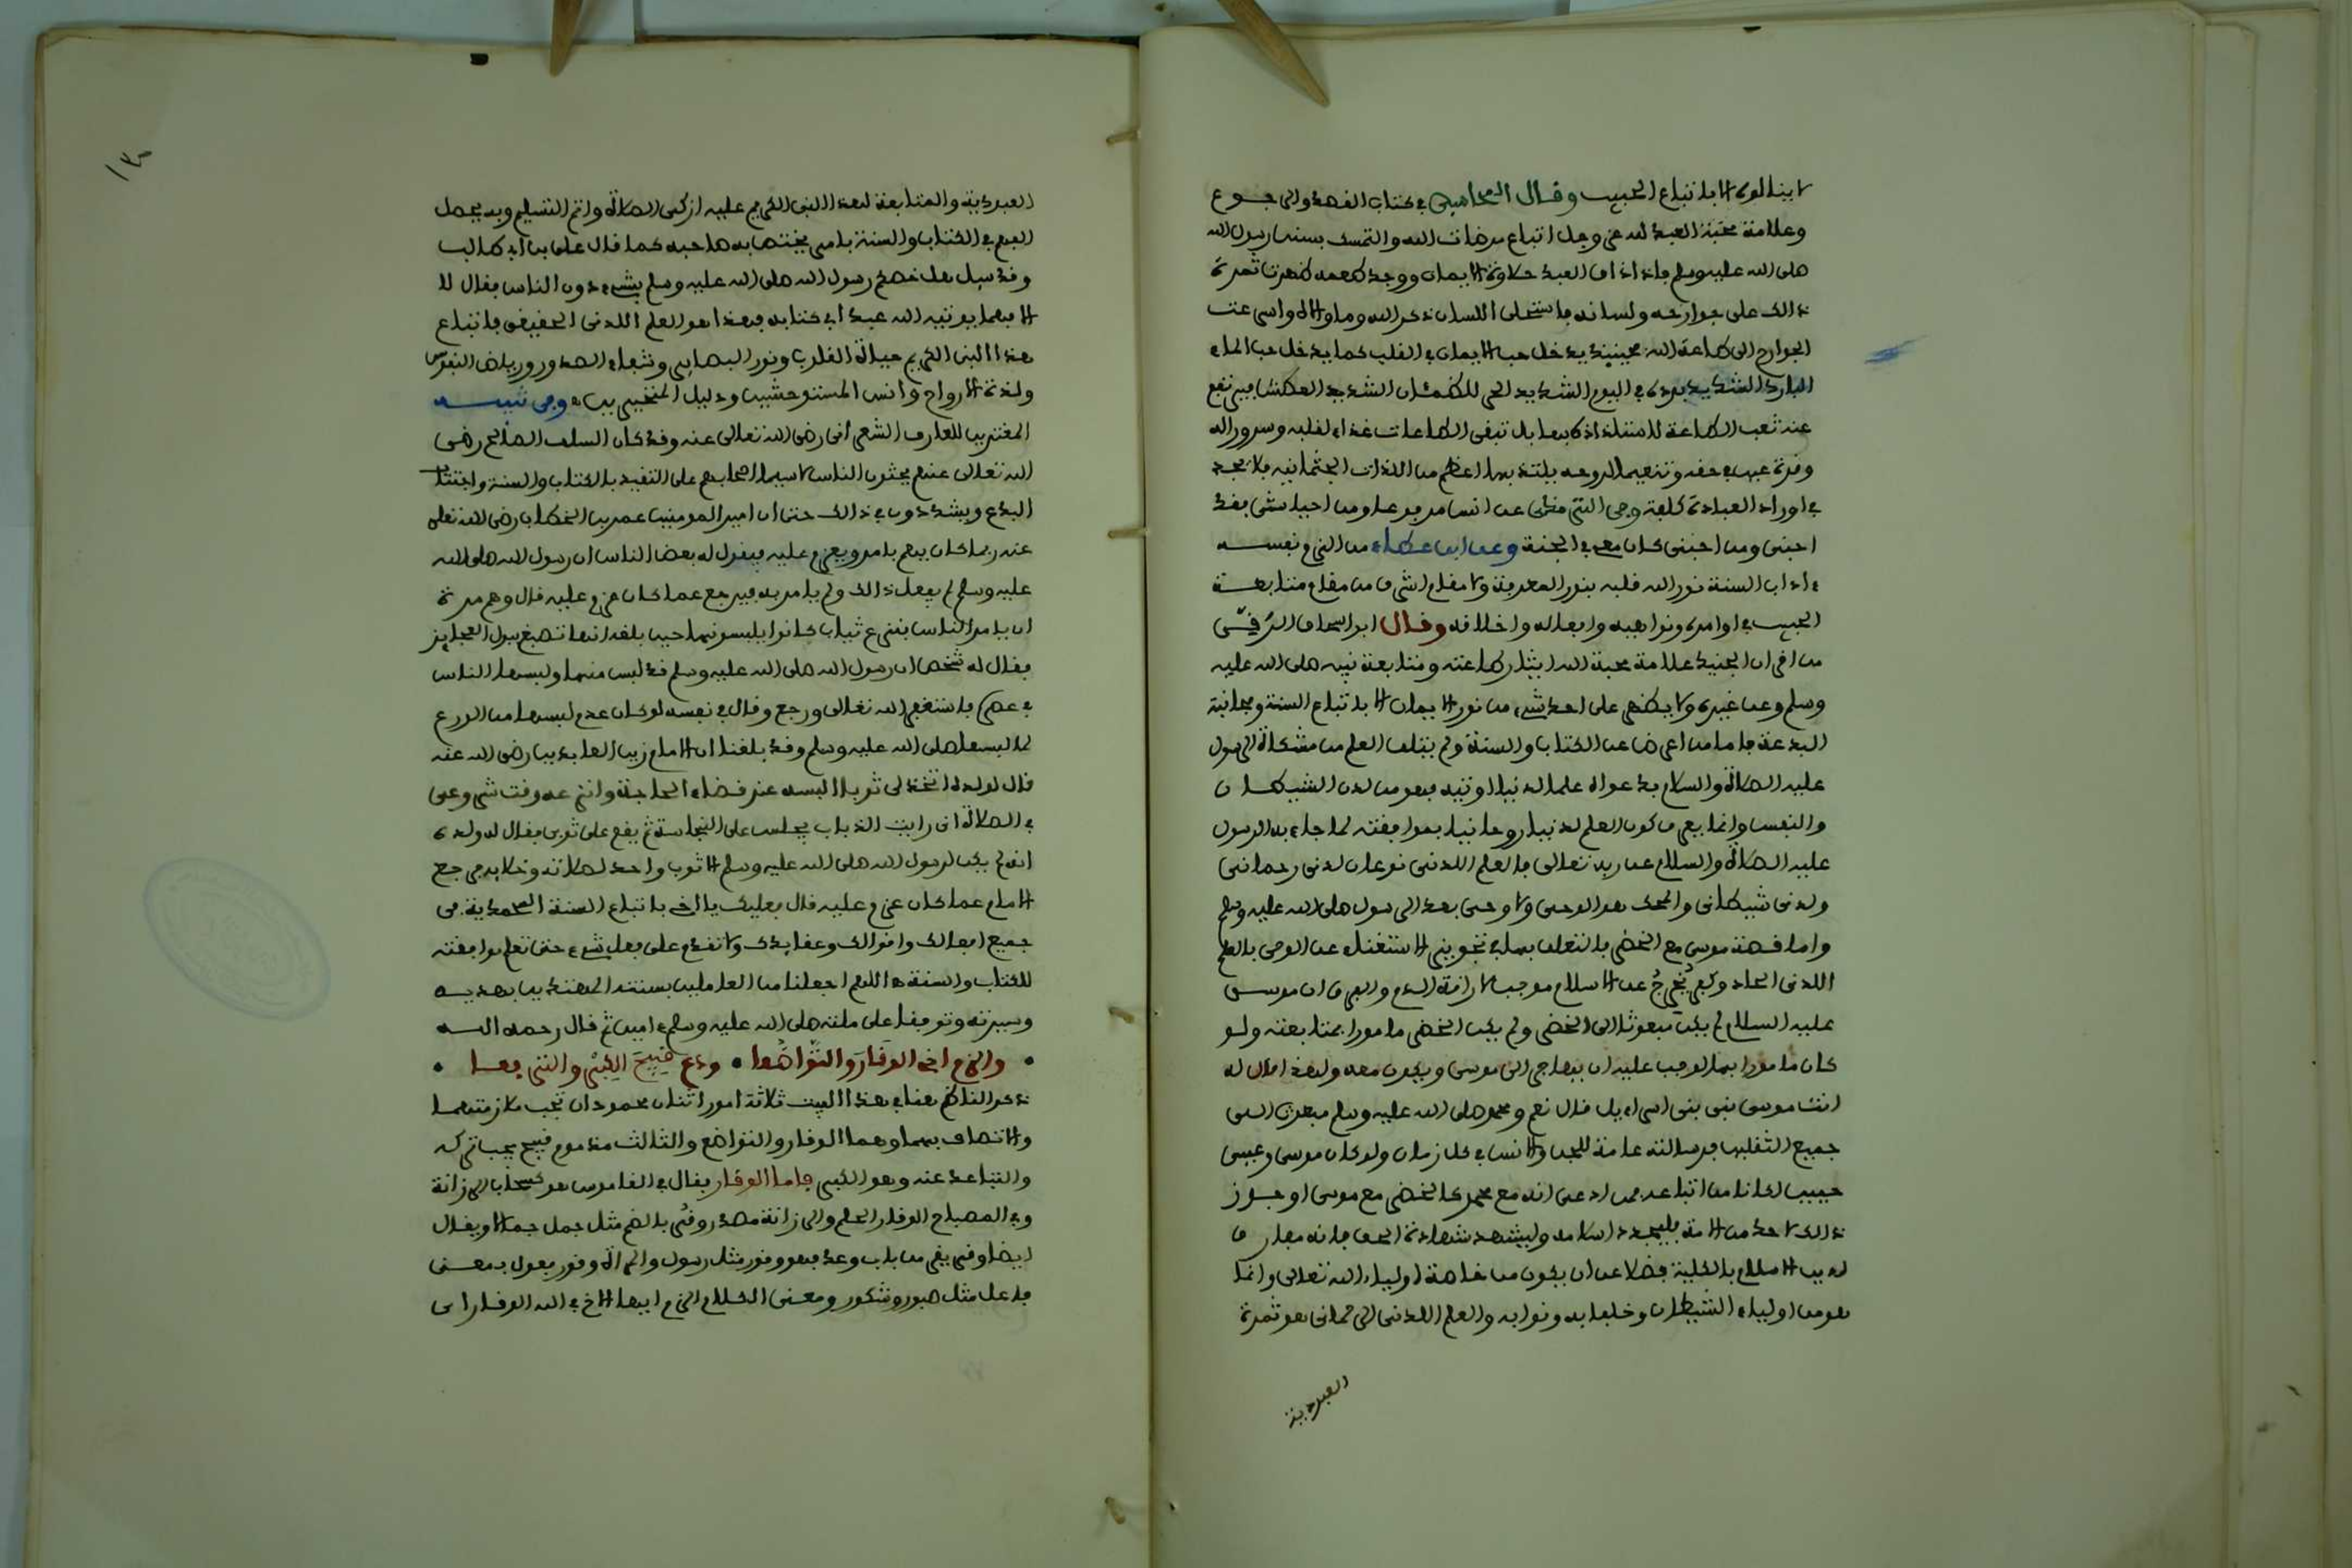 لاينالون الا باتباع الحبيب وقال المحاسبي في كتاب القصد والرجوع
وعلامة محبة العبد لله عز وجل اتباع مرضات الله والتمسك بسنن رسول الله
صلى الله عليه وسلم فاذا ذاق العبد حلاوة الايمان ووجد طعمه ظهرت ثمرة
ذالك على جوارحه ولسانه فاستحلى اللسان ذكر الله وما والاه واسرعت
الجوارح الى طاعة الله فحينئذ يدخل حب الايمان في القلب كما يدخل حب الماء
البارد الشديد برده في اليوم الشديد الحر للظمئان الشديد العطش فيرتفع
عنه تعب الطاعة لاستلذاذه بها بل تبقى الطاعات غذاء لقلبه وسرورا له
وقرة عين في حقه ونعيما لروحه يلتذ بها اعظم من اللذات الجثمانية فلا يجد
في اوراد العبادة كلفة وفي الترمذي عن انس مرفوعا ومن احيا سنتي فقد
احبني ومن احبني كان معي في الجنة وعن ابن عطاء من الزم نفسه
ءاداب السنة نور الله قلبه بنور المعرفة ولا مقام اشرف من مقام متابعة
الحبيب في اوامره ونواهيه وافعاله واخلاقه وقال ابو اسحاق الرقي
من اقران الجنيد علامة محبة الله ايثار طاعته ومتابعة نبيه صلى الله عليه
وسلم وعن غيره ولا يظهر على احد شيء من نور الايمان الا باتباع السنة ومجانبة
البدعة فاما من اعرض عن الكتاب والسنة ولم يتلق العلم من مشكاة الرسول
عليه الصلاة والسلام بدعواه علما لدنيا اوتيه فهو من لدن الشيطان
والنفس وانما يعرف كون العلم لدنيا روحانيا بموافقته لما جاء به الرسول
عليه الصلاة والسلام عن ربه تعالى فالعلم اللدني نوعان لدني رحماني
ولدني شيطاني والمحك هو الوحي ولا وحي بعد الرسول صلى الله عليه وسلم
واما قصة موسى مع الخضر فالتعلق بها في تجويز الاستغناء عن الوحي بالعلم
اللدني الحاد وكفر يُخرِجُ عن الاسلام موجب لاراقة الدم والفرق ان موسى
عليه السلام لم يكن مبعوثا الى الخضر ولم يكن الخضر مامورا بمتابعته ولو
كان مامورا بها لوجب عليه ان يهاجر الى موسى ويكون معه ولهذا قال له
انت موسى نبي بني اسراءيل قال نعم ومحمد صلى الله عليه وسلم مبعوث الى
جميع الثقلين فرسالته عامة للجن والانس في كل زمان ولو كان موسى وعيسى
حيين لكانا من اتباعه فمن ادعى انه مع محمد كالخضر مع موسى او جوز
ذالك لاحد من الامة فليجدد اسلامه وليشهد شهادة الحق فانه مفارق
لدين الاسلام بالكلية فضلا عن ان يكون من خاصة اولياء الله تعالى وانما
هو من اولياء الشيطان وخلفايه ونوابه والعلم اللدني الرحماني هو ثمرة
العبودية
١٣٠
العبودية والمتابعة لهذا النبي الكريم عليه ازكى الصلاة واتم التسليم وبه يحصل
الفهم في الكتاب والسنة بامر يختص به صاحبه كما قال علي بن ابي طالب
وقد سيل هل خصكم رسول الله صلى الله عليه وسلم بشيء دون الناس فقال لا
الا فهما يوتيه الله عبدا في كتابه فهذا هو العلم اللدني الحقيقي فاتباع
هذا النبي الكريم حياة القلوب ونور البصاير وشفاء الصدور ورياض النفوس
ولذة الارواح وانس المستوحشين ودليل المتحيرين وفي تنبيه
المغترين للعارف الشعراني رضي الله تعالى عنه وقد كان السلف الصالح رضي
الله تعالى عنهم يحثون الناس لاسيما اصحابهم على التقيد بالكتاب والسنة واجتناب
البدع ويشددون في ذالك حتى ان امير المومنين عمر بن الخطاب رضي الله تعالى
عنه ربما كان يهم بامر ويعزم عليه فيقول له بعض الناس ان رسول الله صلى الله
عليه وسلم لم يفعل ذالك ولم يامر به فيرجع عما كان عزم عليه قال وهم مرة
ان يامر الناس بنزع ثياب كانوا يلبسونها حين بلغه انها تصبغ ببول العجايز
فقال له شخص ان رسول الله صلى الله عليه وسلم قد لبس منها ولبسها الناس
في عصره فاستغفر الله تعالى ورجع وقال في نفسه لو كان عدم لبسها من الورع
لما لبسها صلى الله عليه وسلم وقد بلغنا ان الامام زين العابدين رضي الله عنه
قال لولده اتخذ لي ثوبا البسه عند قضاء الحاجة وانزعه وقت شروعي
في الصلاة اني رايت الذباب يجلس على النجاسة ثم يقع على ثوبي فقال له ولده
انه لم يكن لرسول الله صلى الله عليه وسلم الا ثوب واحد لصلاته وخلايه فرجع
الامام عما كان عزم عليه قال فعليك يا اخي باتباع السنة المحمدية في
جميع افعالك واقوالك وعقايدك ولا تقدم على فعل شيء حتى تعلم موافقته
للكتاب والسنة هـ اللهم اجعلنا من العاملين بسنته المهتدين بهديه
وسيرته وتوفنا على ملته صلى الله عليه وسلم ءامين ثم قال رحمه الله
• والزم اخي الوقار والتواضعا • ودع قبيح الكبر والترفعا •
ذكر الناظم هنا في هذا البيت ثلاثة امور اثنان محمودان تجب ملازمتهما
والاتصاف بهما وهما الوقار والتواضع والثالث مذموم قبيح يجب تركه
والتباعد عنه وهو الكبر فاما الوقار فقال في القاموس هو كسحاب الرزانة
وفي المصباح الوقار الحلم والرزانة مصدر وقُر بالضم مثل جمل جمالا ويقال
ايضا وقر يقر من باب وعد فهو وقور مثل رسول والمراة وقور فعول بمعنى
فاعل مثل صبور وشكور ومعنى الكلام الزم ايها الاخ في الله الوقار اي